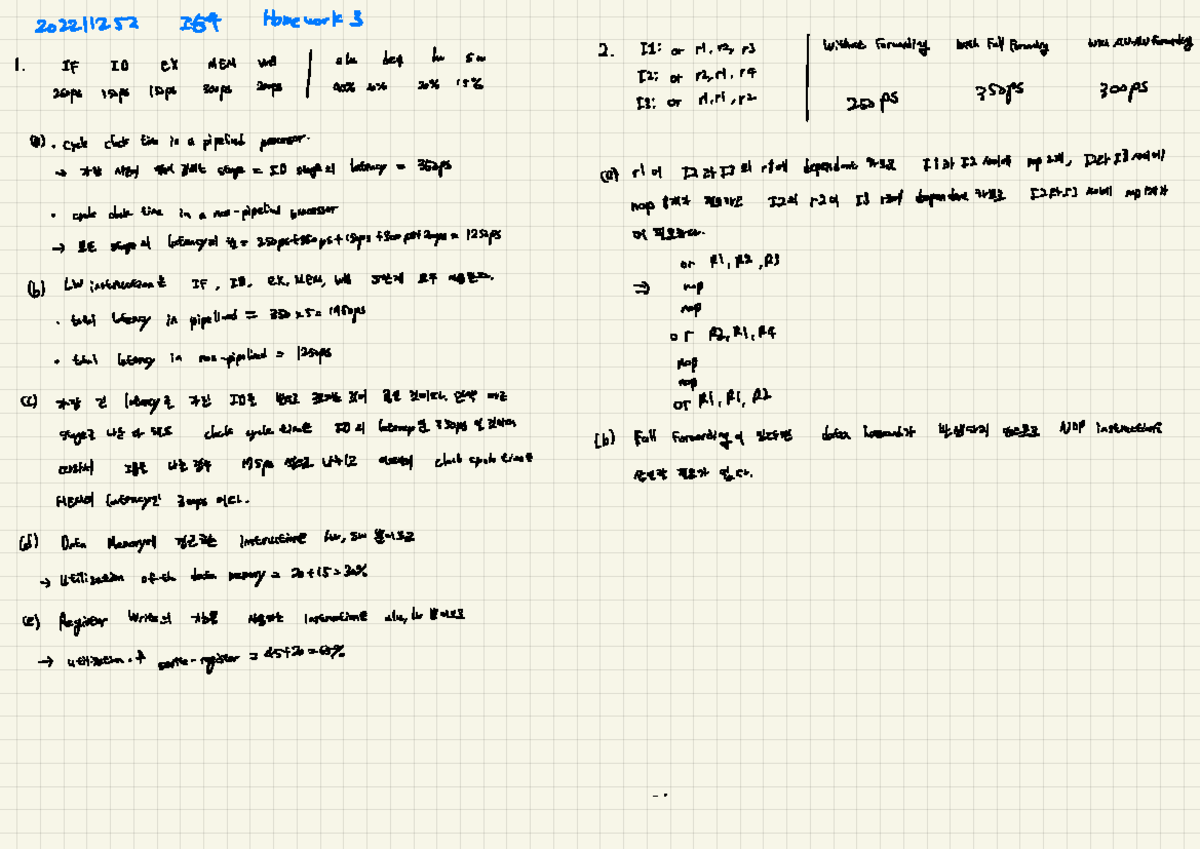 202211252 Homework 3
1. IF ID EX MEM WB | alu beq lw sw
250ps 150ps 300ps 200ps 20% 15%
(a) · cycle clock time in a pipelined processor.
→ 가장 시간이 많이 걸리는 stage = ID stage의 latency = 350ps
· cycle clock time in a non-pipelined processor
→ 모든 stage의 latency의 합 = 250ps+350ps+150ps+300ps+200ps = 1250ps
(b) LW instruction은 IF, ID, EX, MEM, WB 5단계 모두 사용한다.
· total latency in pipelined = 350 x 5 = 1750ps
· total latency in non-pipelined = 1250ps
(c) 가장 긴 latency를 가진 ID를 반으로 것이 좋을 것이다. 만약 다른
stage를 나눈다 해도 clock cycle time은 ID의 latency인 350ps 일 것이다.
따라서 ID를 나눌 경우 175ps 나누어지고 clock cycle time은
MEM의 latency인 300ps 이다.
(d) Data Memory에 접근하는 instruction은 lw, sw 뿐이므로
→ Utilization of the data memory = 20+15=30%
(e) Register Write의 사용하는 Instruction은 alu, lw 뿐이므로
→ utilization of write-register = 45+20=65%
2. I1: or r1, r2, r3
I2: or r2, r1, r4
I3: or r1, r1, r2
Without Forwarding With Full Forwarding With ALU-ALU Forwarding
250ps 350ps 300ps
(a) r1이 I2과 I3의 r1에 dependent 하므로 I1과 I2 사이에 nop 2개, I2와 I3 사이에
nop I2의 r2이 I3 r2에 dependent 하므로 I2와 I3 사이에 nop
이 필요하다.
or R1, R2, R3
⇒ nop
nop
or R2, R1, R4
nop
nop
or R1, R1, R2
(b) Full Forwarding이 있다면 data hazard가 NOP instruction
필요가 없다.